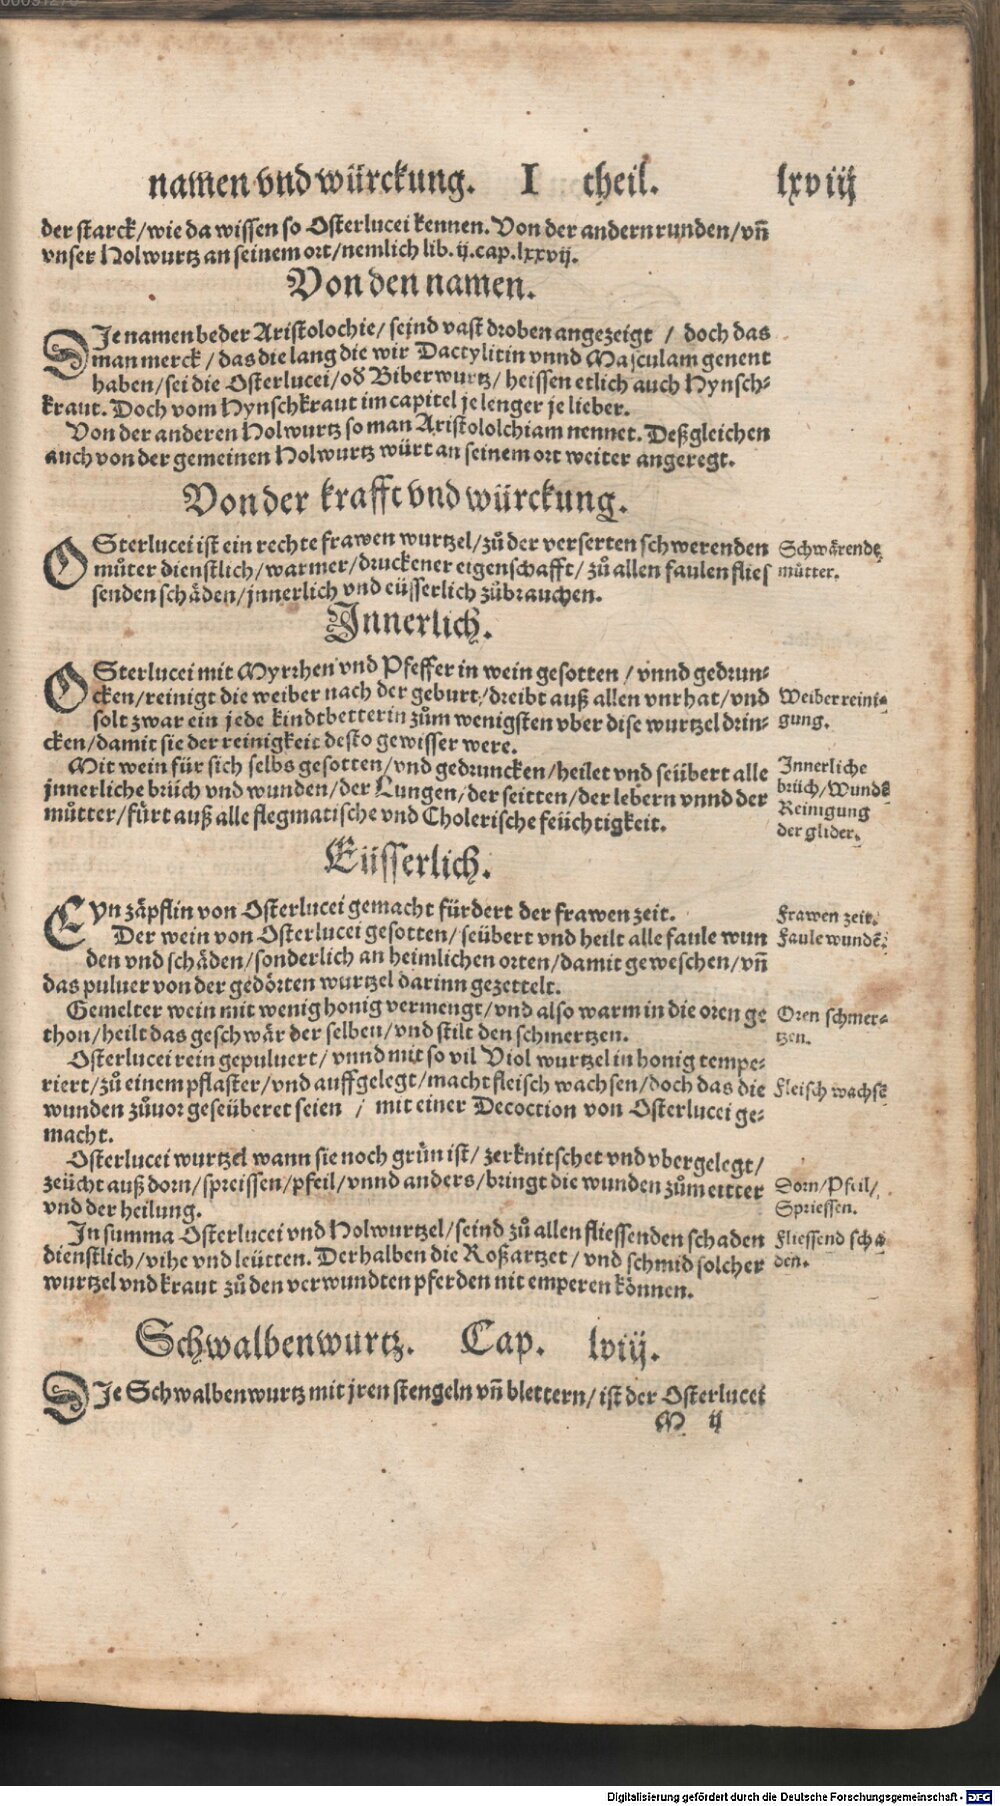 namen vnd würckung. I theil. lxviij
der starck/wie da wissen so Osterlucei kennen. Von der andern runden/vñ
vnser Holwurtz an seinem ort/nemlich lib. ij. cap. lxxvij.
Von den namen.
DIe namen beder Aristolochie/ seind vast droben angezeigt / doch das
man merck / das die lang die wir Dactylitin vnnd Masculam genent
haben/sei die Osterlucei/od Biberwurtz/ heissen etlich auch Hynsch-
kraut. Doch vom Hynschkraut im capitel je lenger je lieber.
Von der anderen Holwurtz so man Aristololchiam nennet. Deßgleichen
auch von der gemeinen Holwurtz würt an seinem ort weiter angeregt.
Von der krafft vnd würckung.
OSterlucei ist ein rechte frawen wurtzel/zů der verserten schwerenden
můter dienstlich/warmer/druckener eigenschafft/ zů allen faulen flies
senden schäden/jnnerlich vnd eüsserlich zůbrauchen.
Schwärende
mütter.
Jnnerlich.
OSterlucei mit Myrrhen vnd Pfeffer in wein gesotten / vnnd gedrun-
cken/reinigt die weiber nach der geburt/dreibt auß allen vnrhat/vnd
solt zwar ein jede kindtbetterin zům wenigsten vber dise wurtzel drin-
cken/damit sie der reinigkeit desto gewisser were.
Weiber reini-
gung.
Mit wein für sich selbs gesotten/vnd gedruncken/heilet vnd seübert alle
jnnerliche brüch vnd wunden/der Lungen/der seitten/der lebern vnnd der
můtter/fürt auß alle flegmatische vnd Cholerische feüchtigkeit.
Jnnerliche
brüch/Wundē
Reinigung
der glider.
Eüsserlich.
EYn zäpflin von Osterlucei gemacht fürdert der frawen zeit.
Der wein von Osterlucei gesotten/seübert vnd heilt alle faule wun
den vnd schäden/sonderlich an heimlichen orten/damit geweschen/vñ
das puluer von der gedörten wurtzel darinn gezettelt.
Frawen zeit.
Faule wundē.
Gemelter wein mit wenig honig vermengt/vnd also warm in die oren ge
thon/heilt das geschwär der selben/vnd stilt den schmertzen.
Oren schmer-
tzen.
Osterlucei rein gepuluert/ vnnd mit so vil Viol wurtzel in honig tempe-
riert/zů einem pflaster/vnd auffgelegt/macht fleisch wachsen/doch das die
wunden zůuor geseüberet seien / mit einer Decoction von Osterlucei ge-
macht.
Fleisch wachsē
Osterlucei wurtzel wann sie noch grün ist/ zerknitschet vnd vbergelegt/
zeücht auß dorn/spreissen/pfeil/vnnd anders/bringt die wunden zům eitter
vnd der heilung.
Dorn/Pfeil/
Spriessen.
In summa Osterlucei vnd Holwurtzel/seind zů allen fliessenden schaden
dienstlich/vihe vnd leütten. Derhalben die Roßartzet/ vnd schmid solcher
wurtzel vnd kraut zů den verwundten pferden nit emperen können.
Fliessend schä
den.
Schwalbenwurtz. Cap. lviij.
DIe Schwalbenwurtz mit jren stengeln vñ blettern/ist der Osterlucei
M ij
Digitalisierung gefördert durch die Deutsche Forschungsgemeinschaft - DFG